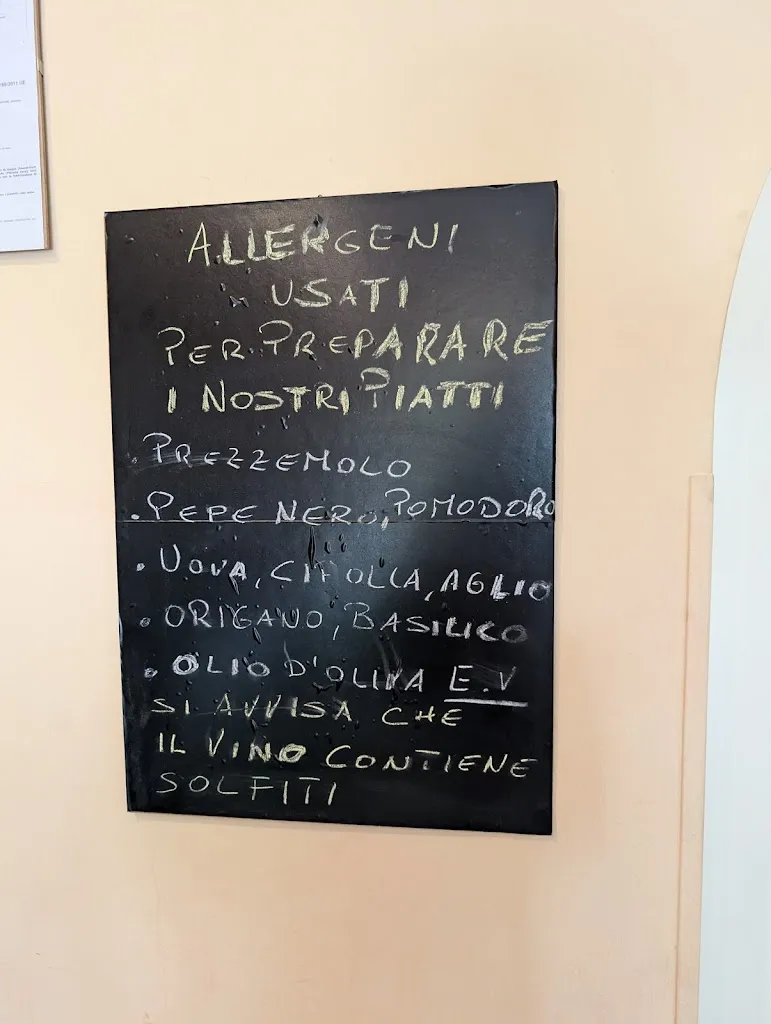 ALLERGENI
USATI
PER PREPARARE
I NOSTRI PIATTI
. PREZZEMOLO
. PEPE NERO, POMODORO
. UOVA, CIPOLLA, AGLIO
. ORIGANO, BASILICO
. OLIO D'OLIVA E.V
SI AVVISA CHE
IL VINO CONTIENE
SOLFITI